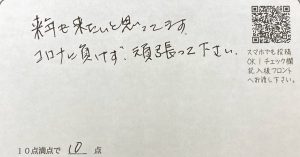 来年も来たいと思ってます。
コロナに負けず、頑張って下さい。
スマホでも投稿
OK！チェック欄
記入後フロント
へお渡し下さい。
10点満点で 10 点